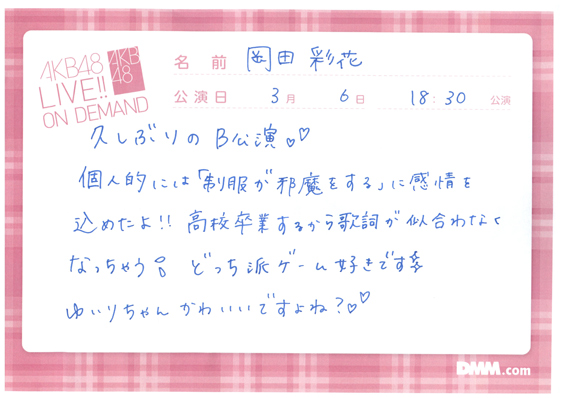 AKB48
LIVE!!
ON DEMAND
AKB
48
名前 岡田 彩花
公演日 3月 6日 18:30 公演
久しぶりのB公演♡♡
個人的には「制服が邪魔をする」に感情を
込めたよ!! 高校卒業するから歌詞が似合わなく
なっちゃう どっち派ゲーム好きです
ゆいりちゃんかわいいですよね?♡♡
DMM.com